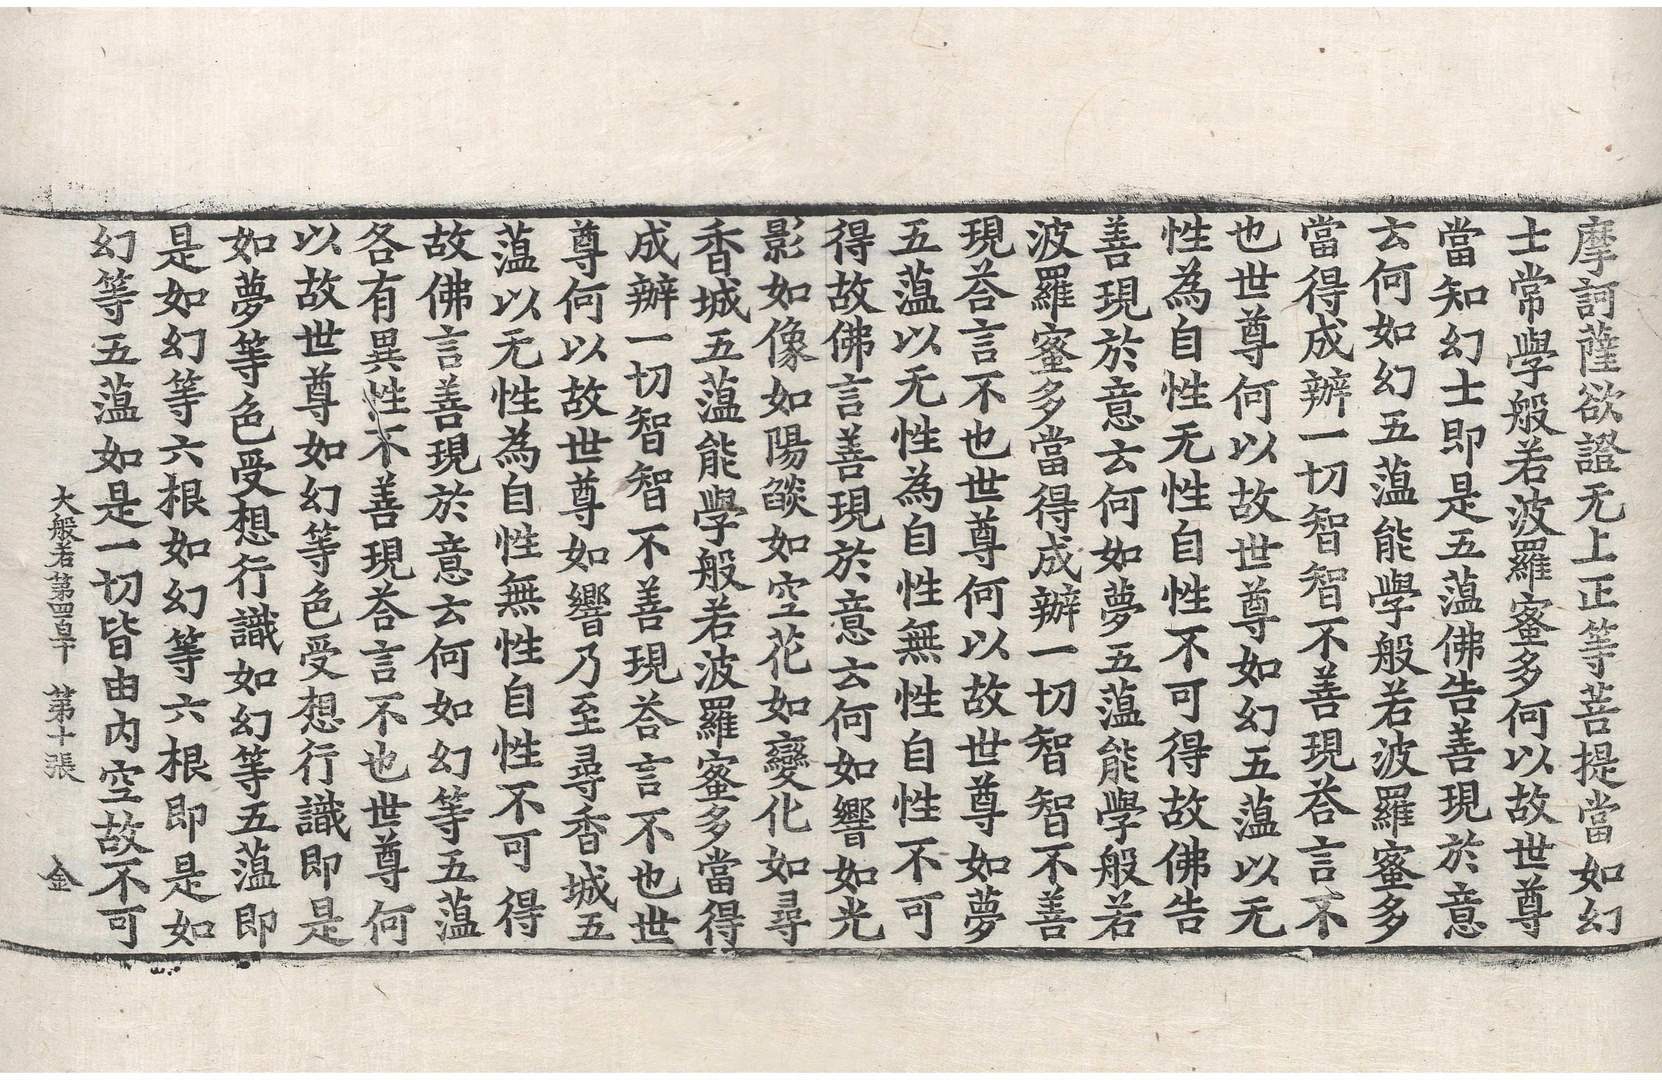 摩訶薩欲證无上正等菩提當如幻
士常學般若波羅蜜多何以故世尊
當知幻士即是五蕰佛告善現於意
云何如幻五蕰能學般若波羅蜜多
當得成辦一切智智不善現荅言不
也世尊何以故世尊如幻五蕰以无
性為自性无性自性不可得故佛告
善現於意云何如夢五蕰能學般若
波羅蜜多當得成辦一切智智不善
現荅言不也世尊何以故世尊如夢
五蕰以无性為自性無性自性不可
得故佛言善現於意云何如響如光
影如像如陽燄如空花如變化如尋
香城五蕰能學般若波羅蜜多當得
成辦一切智智不善現荅言不也世
尊何以故世尊如響乃至尋香城五
蕰以无性為自性無性自性不可得
故佛言善現於意云何如幻等五蕰
各有異性不善現荅言不也世尊何
以故世尊如幻等色受想行識即是
如夢等色受想行識如幻等五蕰即
是如幻等六根如幻等六根即是如
幻等五蕰如是一切皆由內空故不可
大般若第四百十 第十張 金